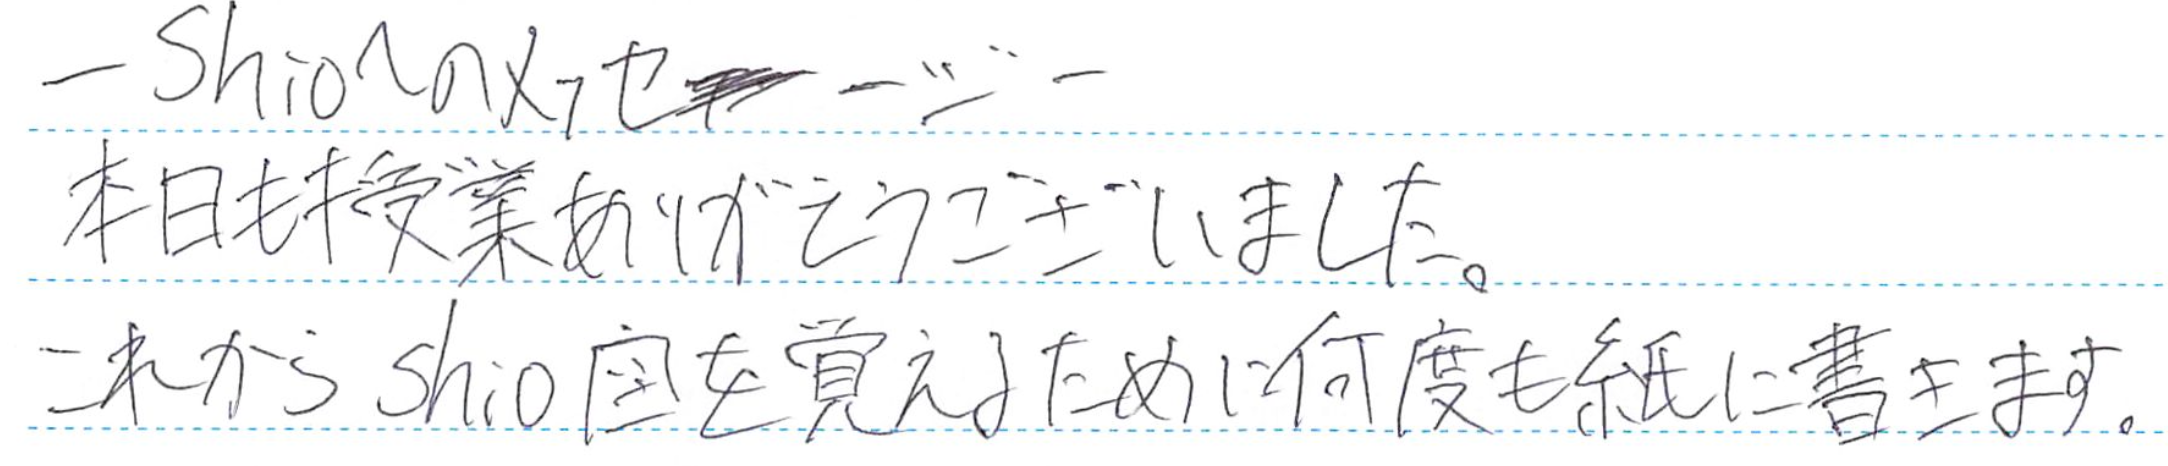 ーShioへのメッセージー
本日も授業ありがとうございました。
これからshio図を覚えるために何度も紙に書きます。